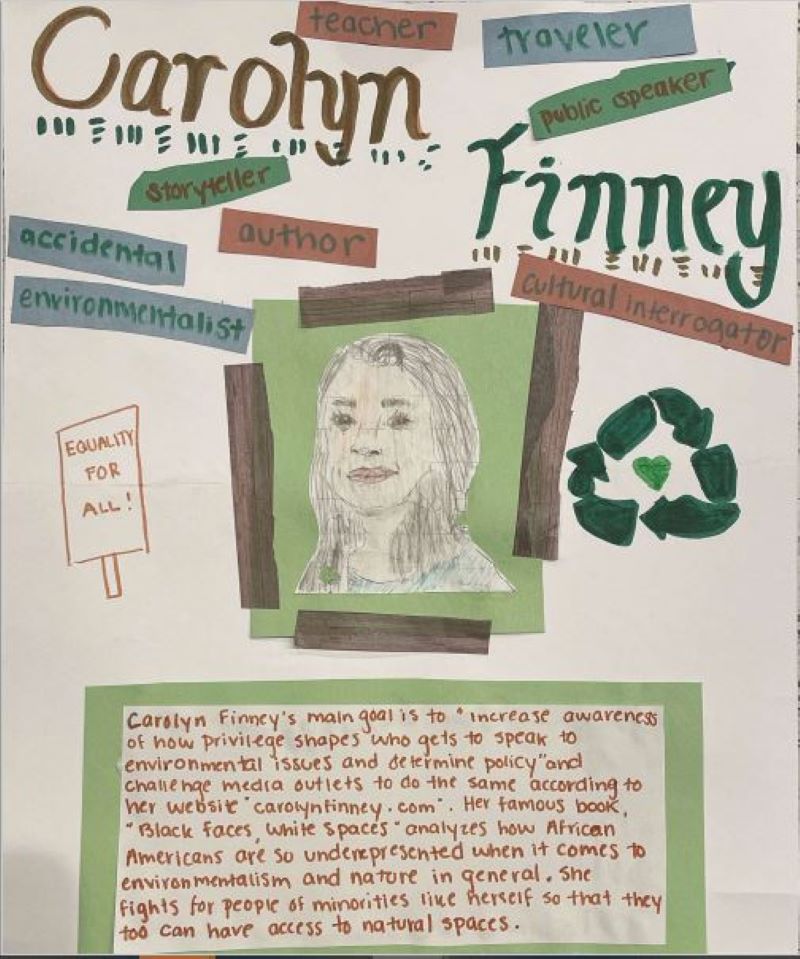 teacher
traveler
Carolyn
public speaker
Finney
storyteller
author
accidental
environmentalist
cultural interrogator
EQUALITY
FOR
ALL!
Carolyn Finney's main goal is to "increase awareness
of how privilege shapes who gets to speak to
environmental issues and determine policy" and
challenge media outlets to do the same according to
her website "carolynfinney.com". Her famous book,
"Black Faces, White Spaces" analyzes how African
Americans are so underepresented when it comes to
environmentalism and nature in general. She
fights for people of minorities like herself so that they
too can have access to natural spaces.